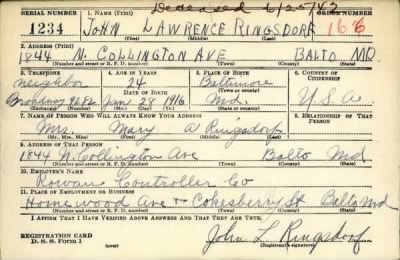 Deceased 6/25/42
SERIAL NUMBER 1. NAME (Print) ORDER NUMBER
1234 JOHN LAWRENCE RINGSDORF
(First) (Middle) (Last)
2. ADDRESS (Print)
1844 N. COLLINGTON AVE BALTO MD
(Number and street or R. F. D. number) (Town) (County) (State)
3. TELEPHONE 4. AGE IN YEARS 5. PLACE OF BIRTH 6. COUNTRY OF CITIZENSHIP
neighbor 24 Baltimore
DATE OF BIRTH (Town or county)
Broadway 9682 June 28 1916 Md. U.S.A.
(Exchange) (Number) (Mo.) (Day) (Yr.) (State or country)
7. NAME OF PERSON WHO WILL ALWAYS KNOW YOUR ADDRESS 8. RELATIONSHIP OF THAT PERSON
Mrs. Mary A Ringsdorf
(Mr., Mrs., Miss) (First) (Middle) (Last)
9. ADDRESS OF THAT PERSON
1844 N Collington Ave Balto Md
(Number and street or R. F. D. number) (Town) (County) (State)
10. EMPLOYER'S NAME
Rowan Controller Co
11. PLACE OF EMPLOYMENT OR BUSINESS
Homewood Ave & Cokesberry St Balto Md
(Number and street or R. F. D. number) (Town) (County) (State)
I AFFIRM THAT I HAVE VERIFIED ABOVE ANSWERS AND THAT THEY ARE TRUE.
REGISTRATION CARD
D. S. S. Form 1
John L Ringsdorf
(Registrant's signature)